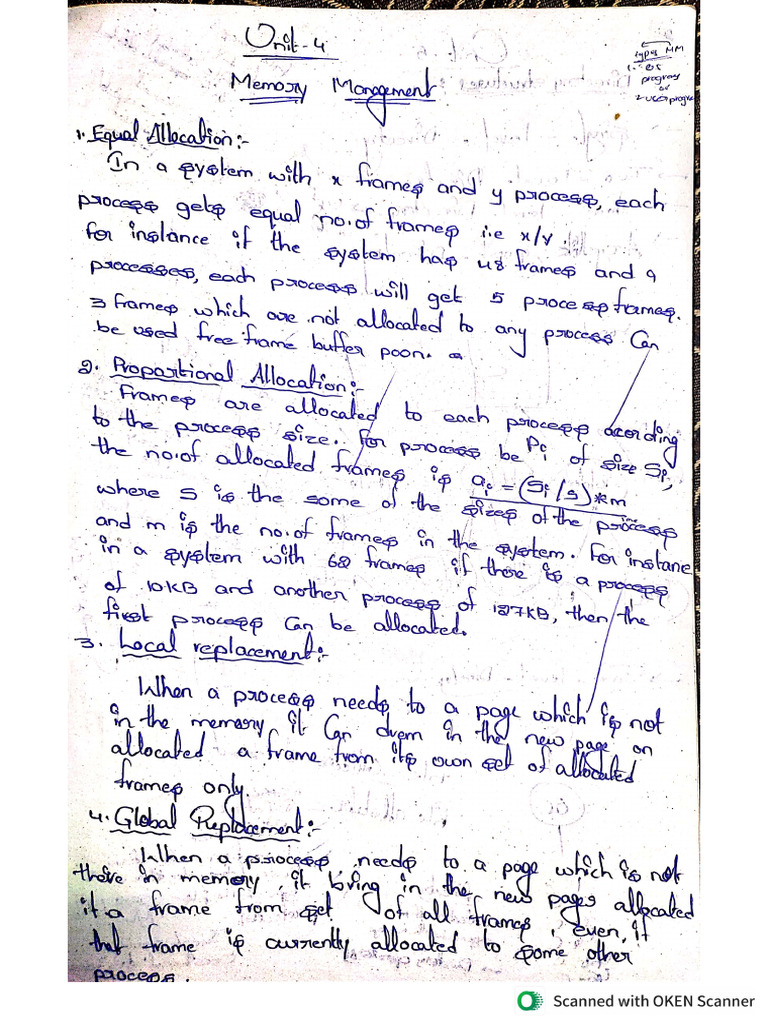 Unit-4
types MM
1. OS
progrms
or
2 user progrm
Memory Management:
1. Equal Allocation:-
In a system with x frames and y process, each
process gets equal no.of frames i.e x/y.
for instance if the system has 48 frames and 9
processes, each process will get 5 process frames.
3 frames which are not allocated to any process Can
be used free frame buffer poon.
2. Propartional Allocation:-
Frames are allocated to each process acording
to the process size. for process be Pi of size Si,
the no.of allocated frames is ai = (Si/s)*m
where S is the some of the sizes of the process
and m is the no.of frames in the system. For instane
in a system with 62 frames if there is a process
of 10KB and another process of 127KB, then the
first process Can be allocated.
3. Local replacement:-
When a process needs to a page which is not
in the memory it Can in the new page on
allocated a frame from its own set of allocated
frames only.
4. Global Replacement:-
When a process needs to a page which is not
there in memory, it bring in the new pages allocated
it a frame from set of all frames, even, if
that frame is currently allocated to some other
process.
Scanned with OKEN Scanner